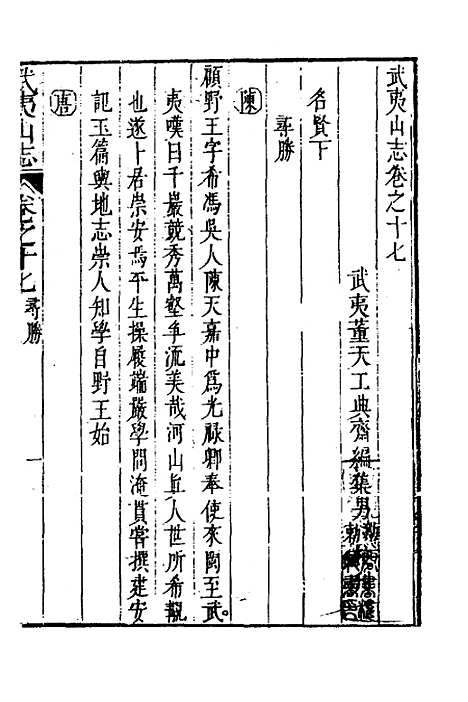 武夷山志卷之十七
武夷董天工典齋編集男
名賢下
尋勝
陳
顧野王字希馮吳人陳天嘉中爲光祿卿奉使來閩至武
夷嘆曰千巖競秀萬壑爭流美哉河山眞人世所希覯
也遂卜居崇安焉平生操履端嚴學問淹貫嘗撰建安
記玉篇輿地志崇人知學自野王始
唐
武夷山志
卷之十七 尋勝 一